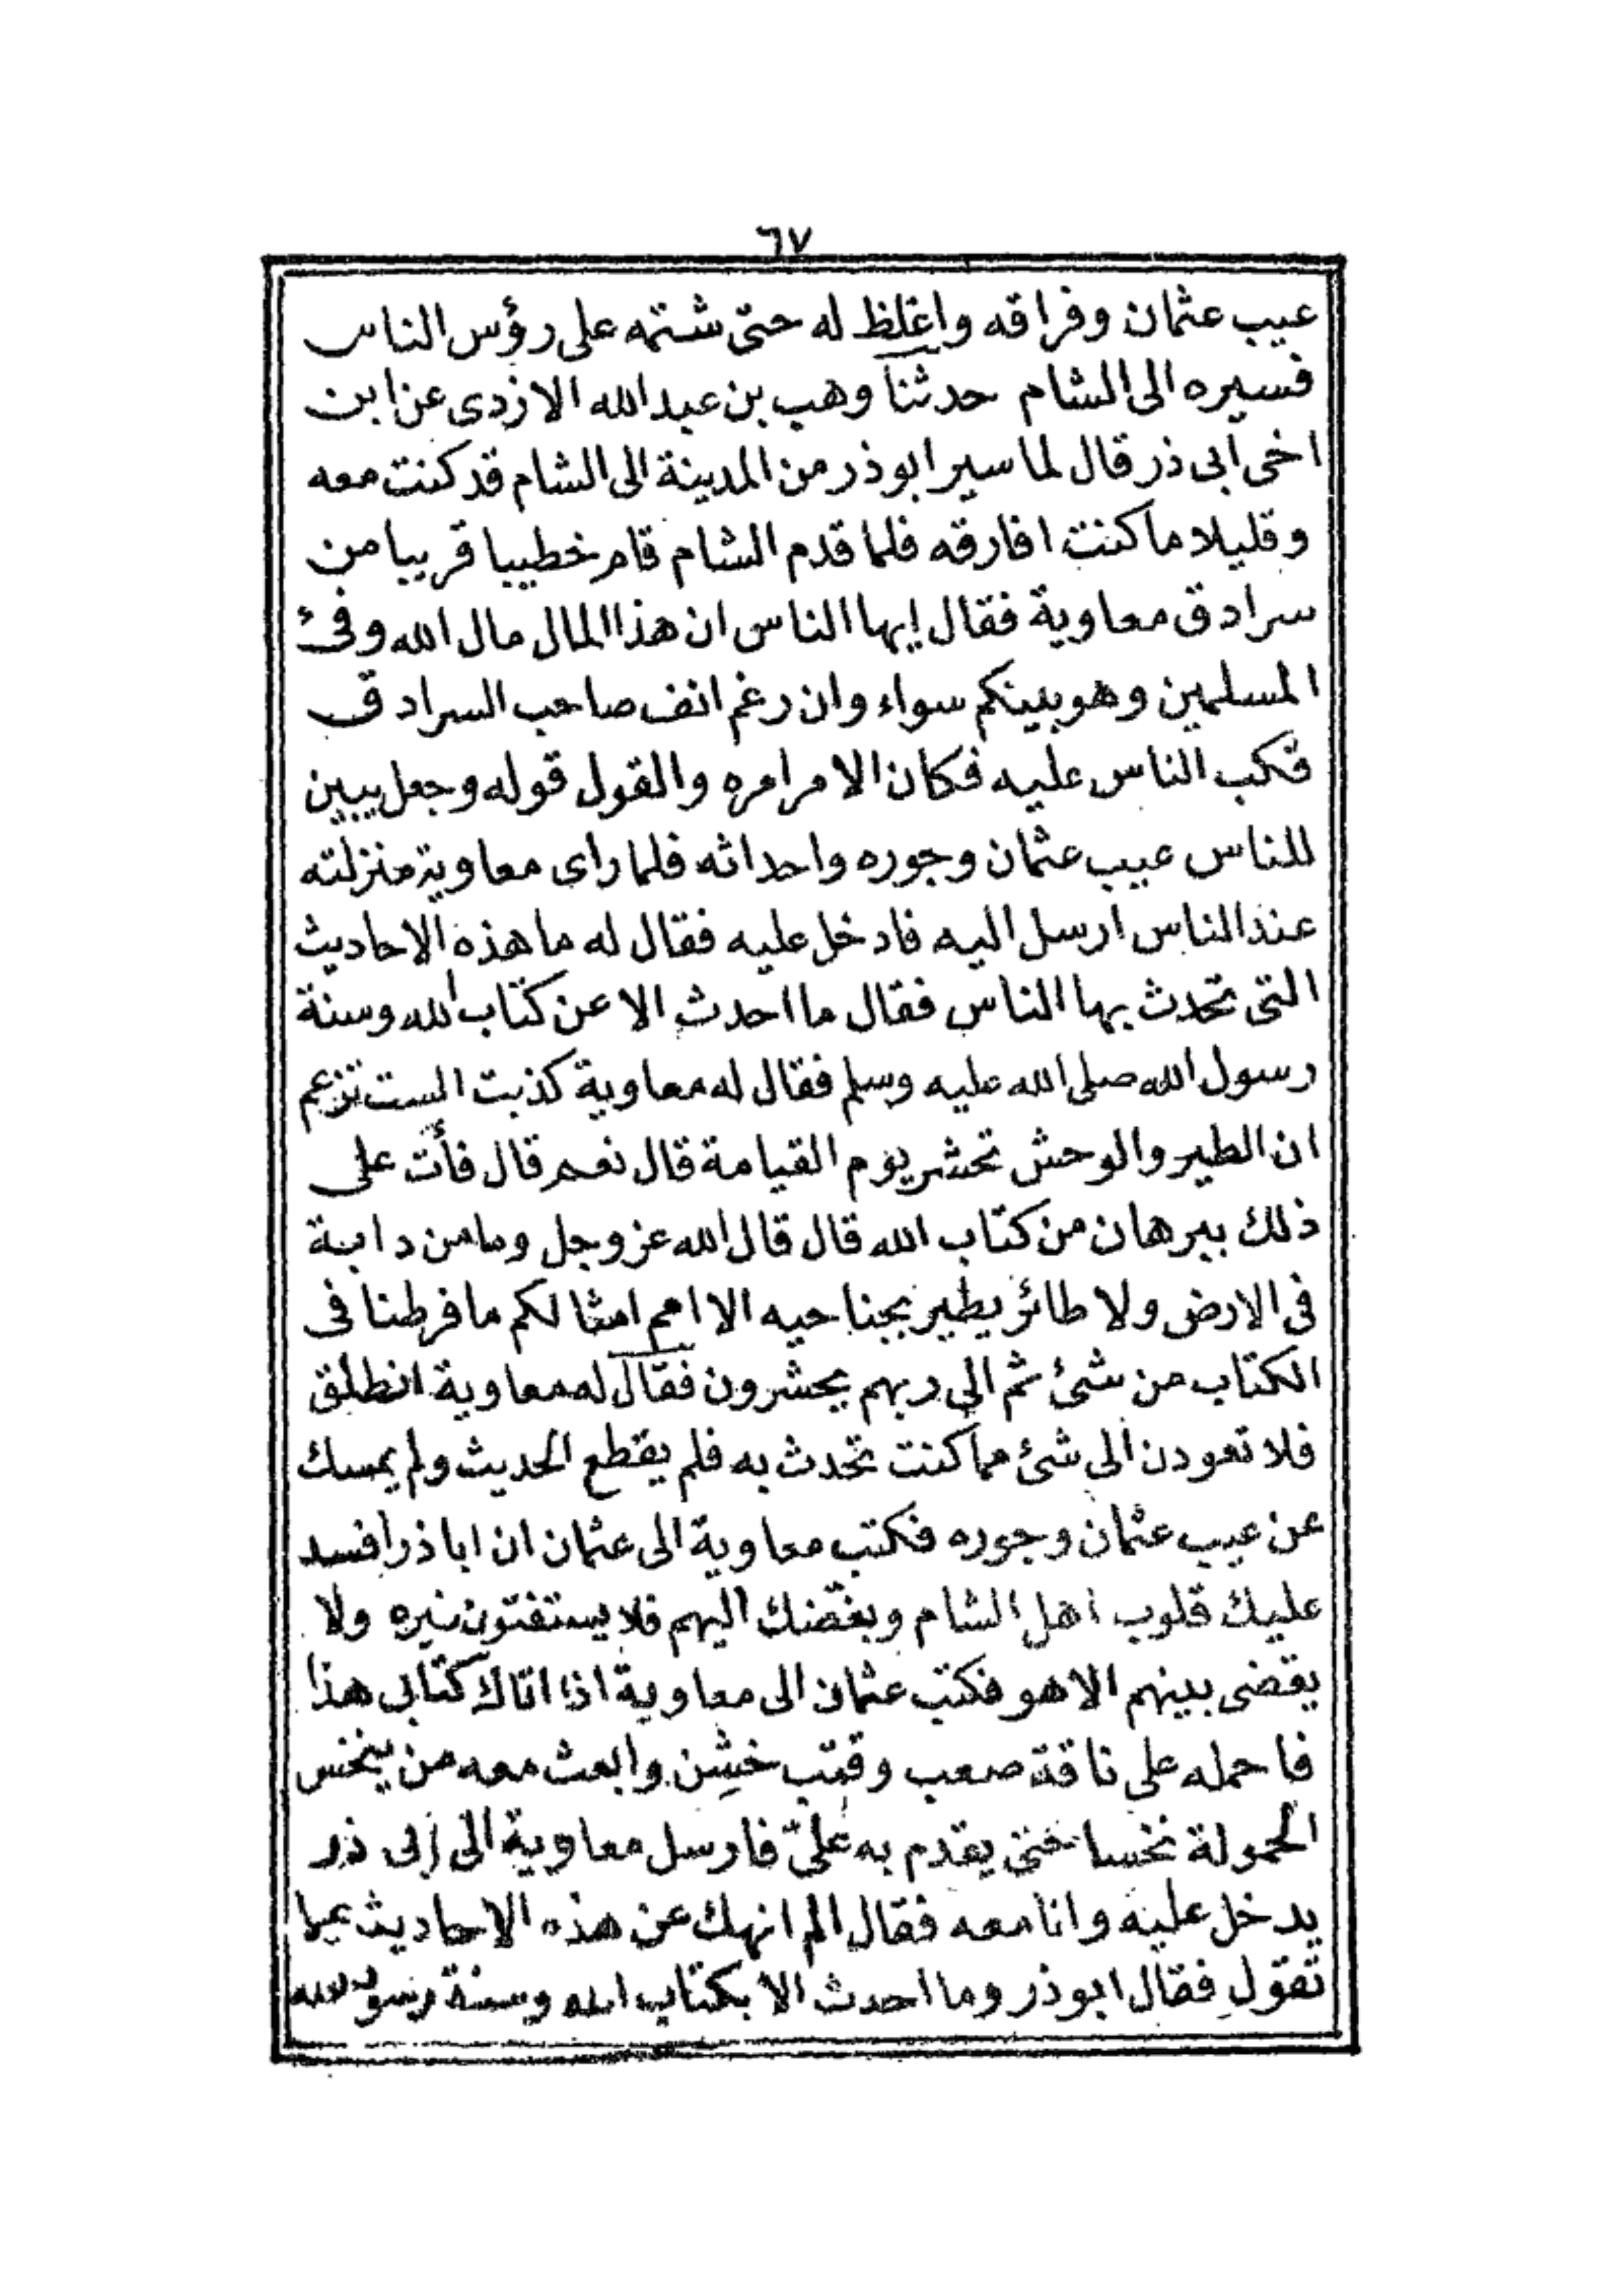 ٦٧
عيب عثمان وفراقه واغلظ له حتى شتمه على رؤس الناس
فسيره الى الشام حدثنا وهب بن عبد الله الازدى عن ابن
اخى ابى ذر قال لما سير ابو ذر من المدينة الى الشام قد كنت معه
وقليلا ما كنت افارقه فلما قدم الشام قام خطيبا قريبا من
سرادق معاوية فقال إيها الناس ان هذا المال مال الله وفئ
المسلمين وهو بينكم سواء وان رغم انف صاحب السرادق
فكب الناس عليه فكان الامر امره والقول قوله وجعل يبين
للناس عيب عثمان وجوره واحداثه فلما راى معاوية منزلته
عند الناس ارسل اليه فادخل عليه فقال له ما هذه الاحاديث
التى تحدث بها الناس فقال ما احدث الا عن كتاب الله وسنة
رسول الله صلى الله عليه وسلم فقال له معاوية كذبت الست تزعم
ان الطير والوحش تحشر يوم القيامة قال نعم قال فأت على
ذلك ببرهان من كتاب الله قال قال الله عز وجل وما من دابة
فى الارض ولا طائر يطير بجناحيه الا امم امثالكم ما فرطنا فى
الكتاب من شئ ثم الى ربهم يحشرون فقال له معاوية انطلق
فلا تعودن الى شئ مما كنت تحدث به فلم يقطع الحديث ولم يمسك
عن عيب عثمان وجوره فكتب معاوية الى عثمان ان ابا ذر افسد
عليك قلوب اهل الشام وبغضك اليهم فلا يستفتون غيره ولا
يقضى بينهم الا هو فكتب عثمان الى معاوية اذا اتاك كتابى هذا
فاحمله على ناقة صعب وقتب خشن وابعث معه من ينخس
الحمولة نخسا حتى يقدم به علىّ فارسل معاوية الى ابى ذر
يدخل عليه وانا معه فقال الم انهك عن هذه الاحاديث عما
تقول فقال ابو ذر وما احدث الا بكتاب الله وسنة رسول الله